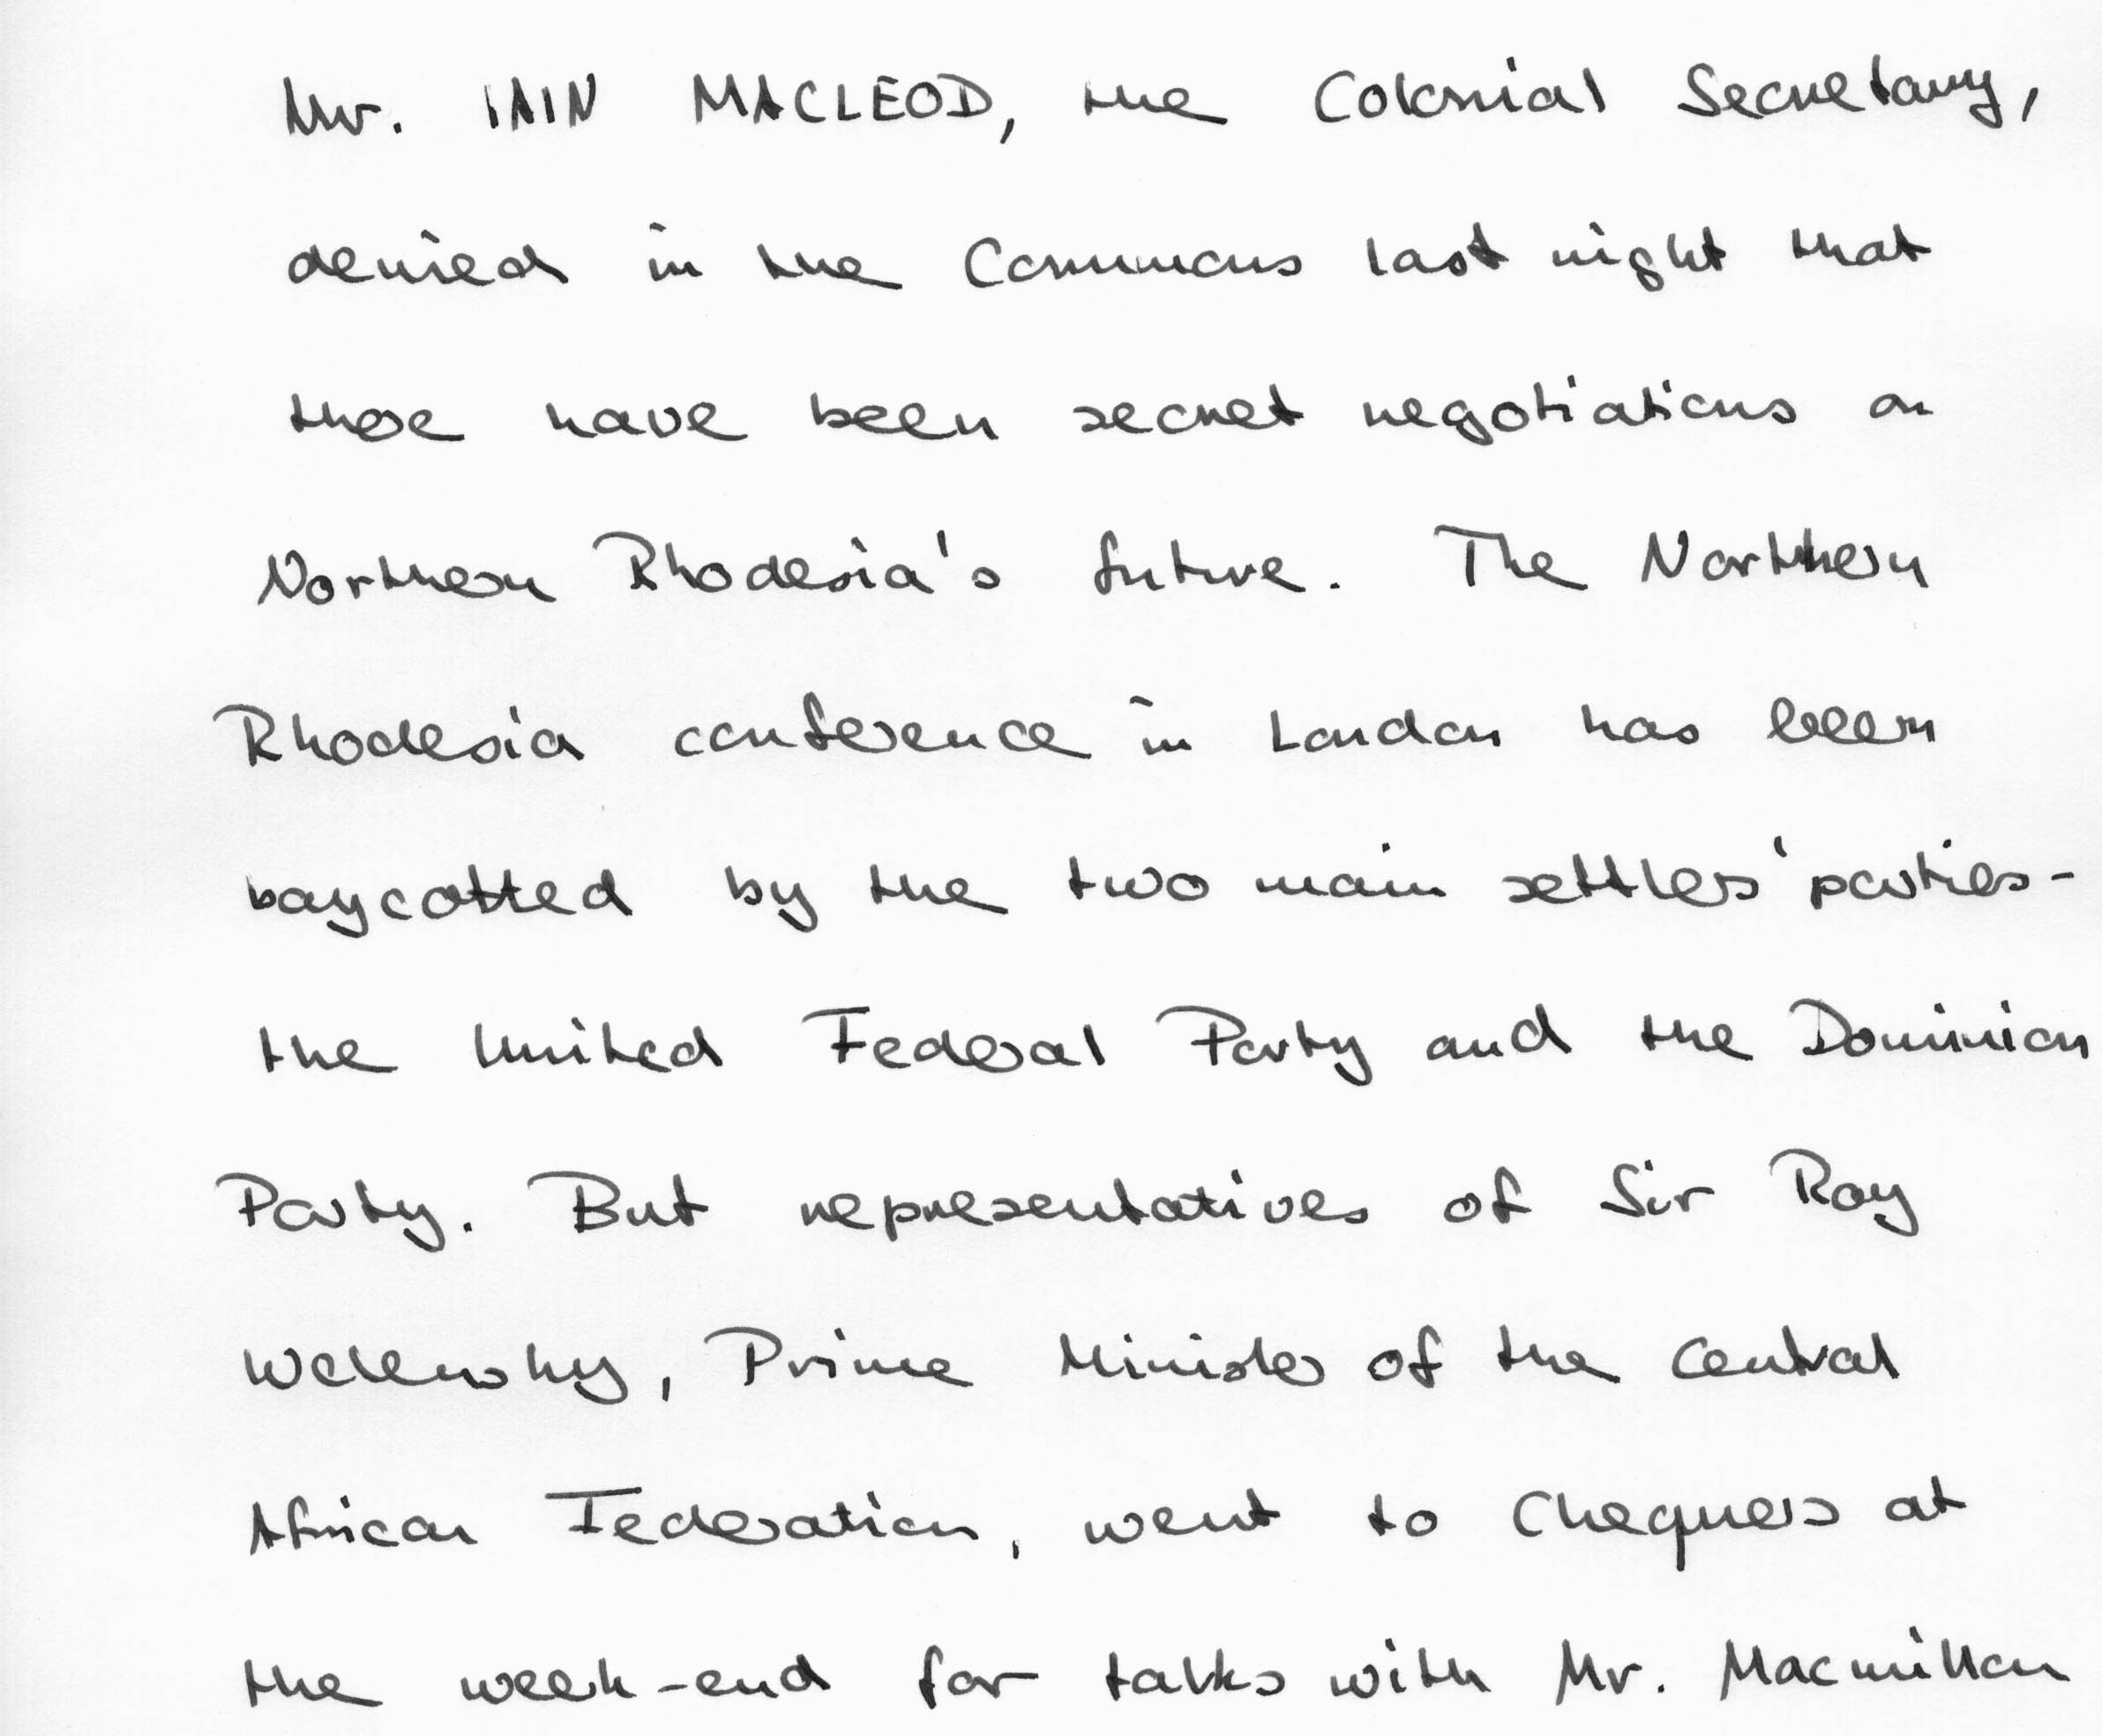 Mr. IAIN MACLEOD, the Colonial Secretary,
denied in the Commons last night that
there have been secret negotiations on
Northern Rhodesia's future. The Northern
Rhodesia conference in London has been
boycotted by the two main settlers' parties -
the United Federal Party and the Dominion
Party. But representatives of Sir Roy
Welensky, Prime Minister of the Central
African Federation, went to Chequers at
the week-end for talks with Mr. Macmillan